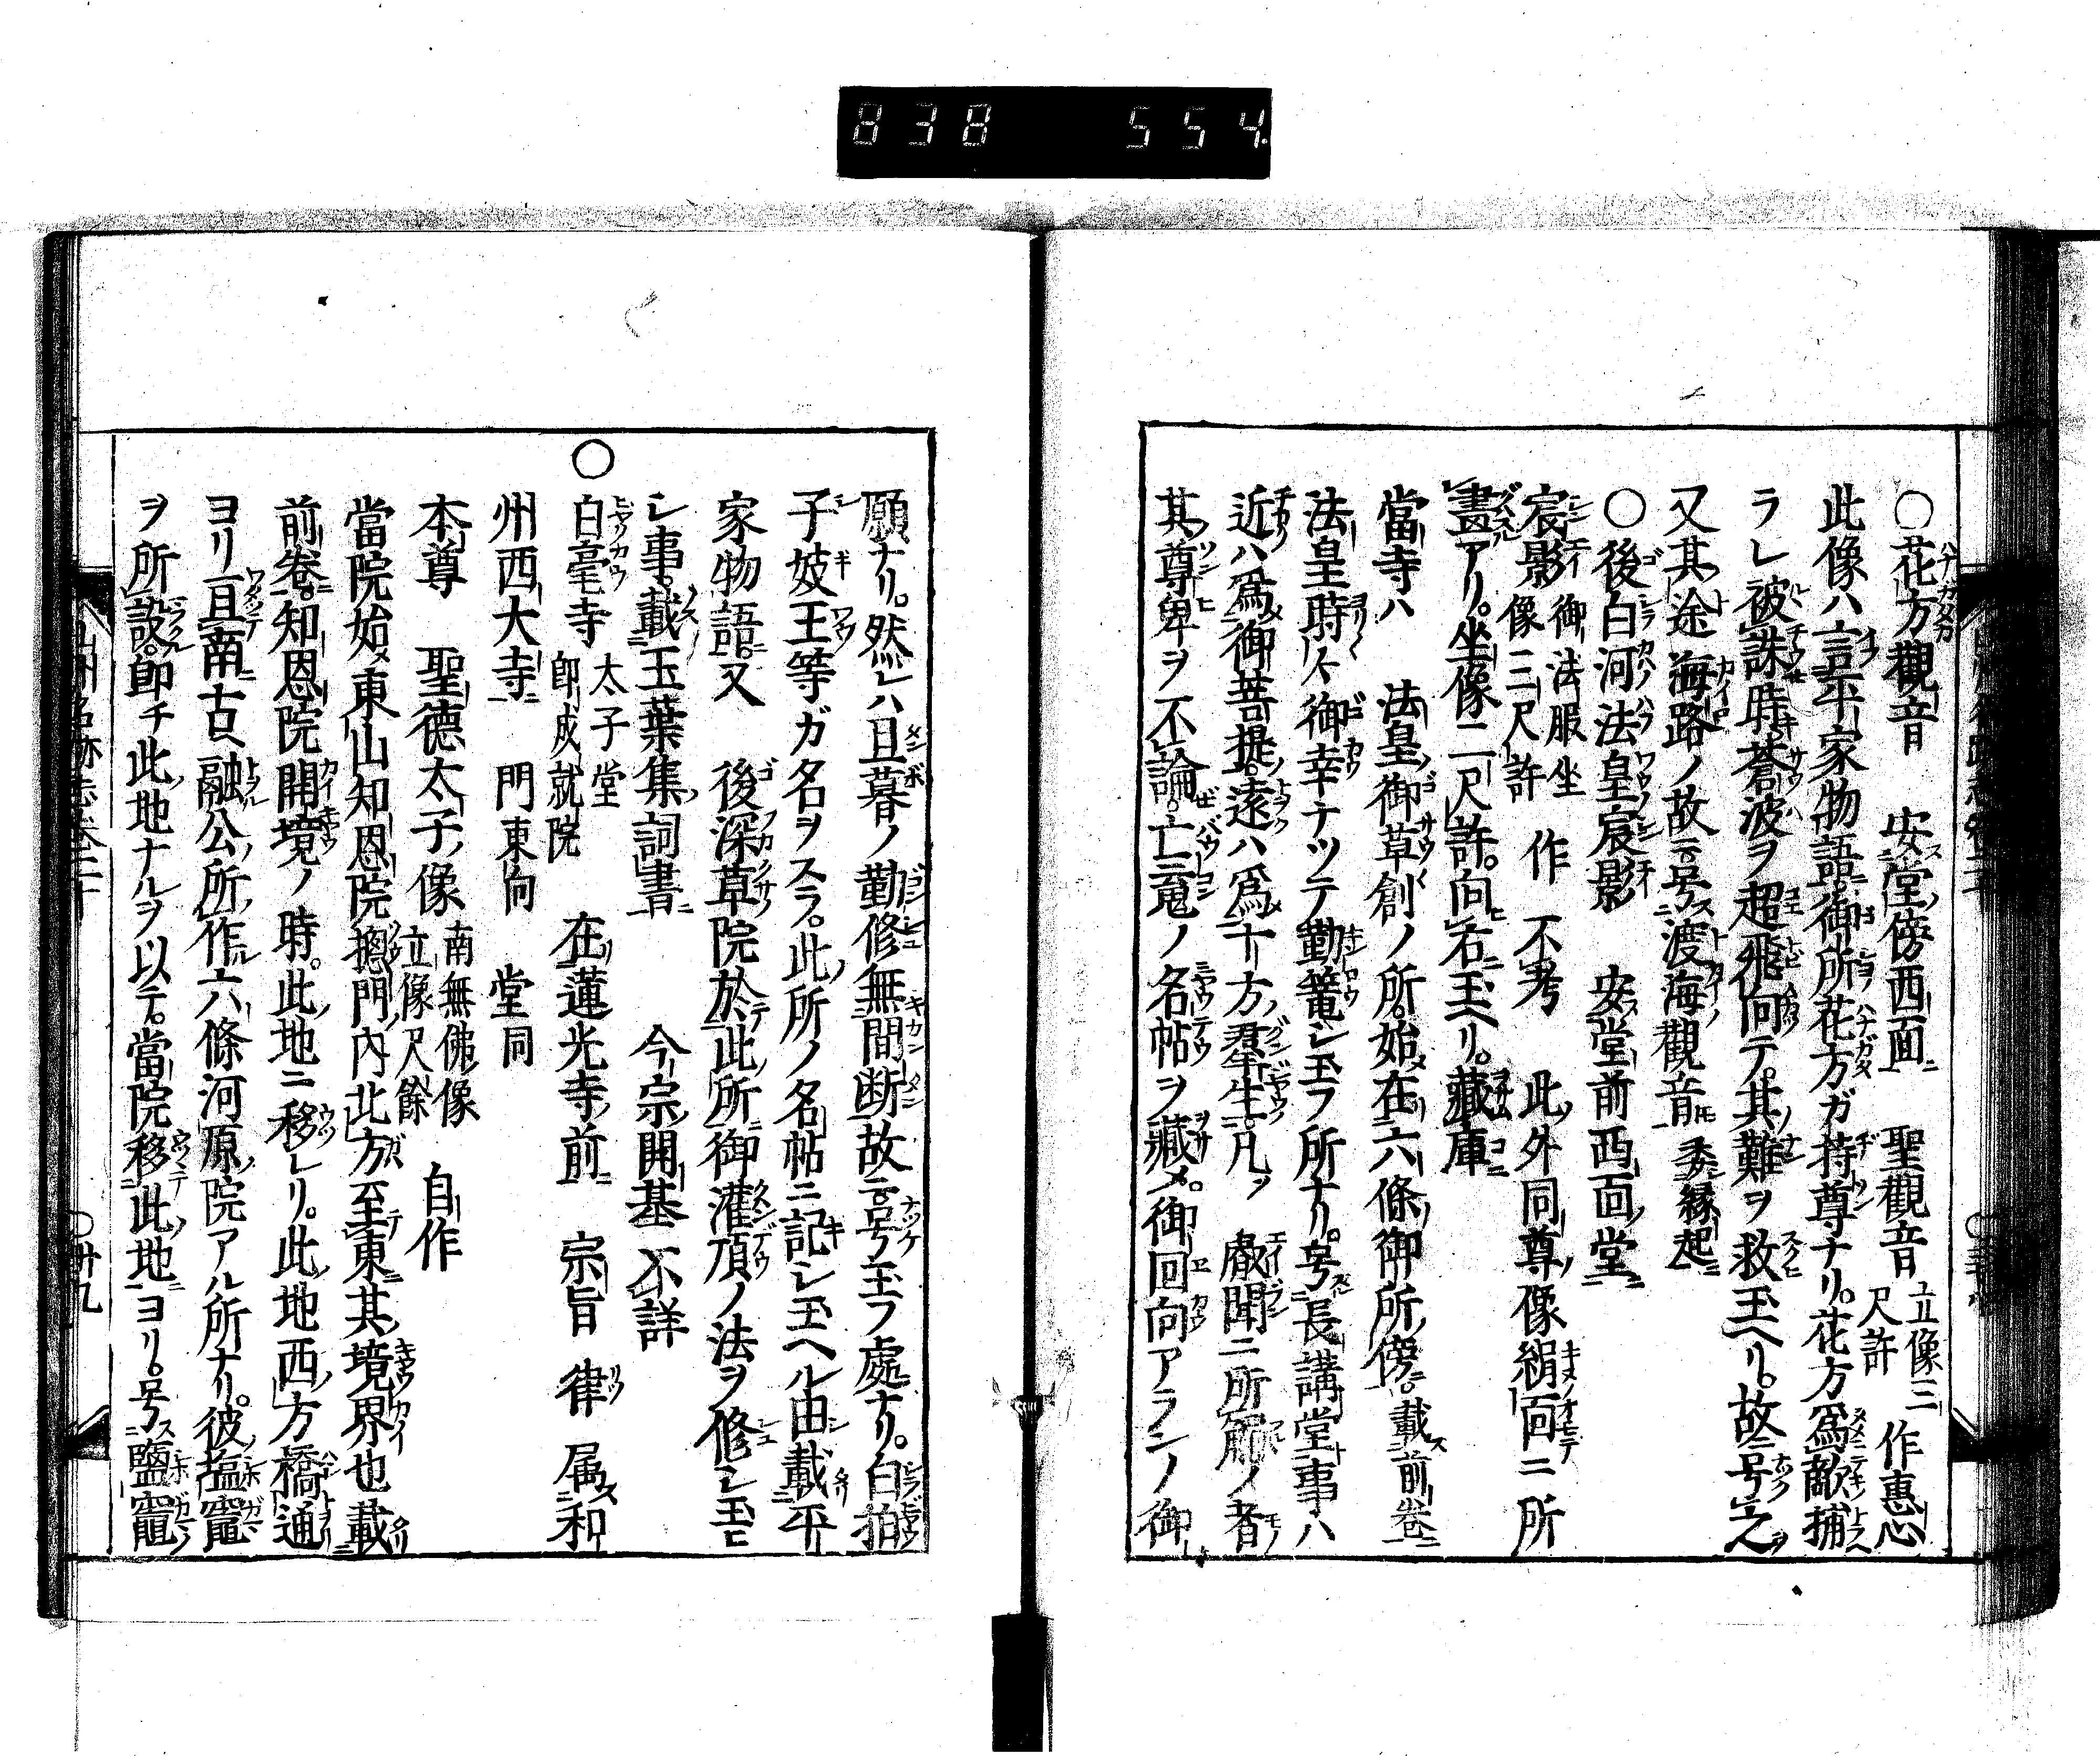 838 554
○花方觀音 安堂傍西面 聖觀音 立像三尺許 作惠心
此像ハ言平家物語御所花方ガ持尊ナリ。花方為敵捕
ラレ被誅時蒼波ヲ超飛向テ。其難ヲ救玉ヘリ。故号之
又其途海路ノ故云号渡海觀音 委縁起
○後白河法皇宸影 安堂前西面堂
宸影 御法服坐像三尺許 作 不考 此外同尊像絹面ニ所
畫アリ。坐像二尺許。向右玉ヘリ。藏庫
當寺ハ 法皇御草創ノ所。始在六條御所傍。載前卷
法皇時々御幸ナツテ勤篭シ玉フ所ナリ。号長講堂事ハ
近ハ為御菩提。遠ハ為十方羣生。凡ソ叡聞ニ所觸ノ者
其尊卑ヲ不論。亡魂ノ名帖ヲ藏メ。御回向アラシノ御
願ナリ。然レハ旦暮ノ勤修無間断故云号玉フ處ナリ。白拍
子妓王等ガ名ヲスラ。此所ノ名帖ニ記シ玉ヘル由載平
家物語。又 後深草院於此所御灌頂ノ法ヲ修シ玉ヒ
シ事。載玉葉集詞書 今宗開基 不詳
○白毫寺 太子堂即成就院 在蓮光寺前 宗旨 律 属和
州西大寺 門東向 堂同
本尊 聖德太子像 南無佛像立像尺餘 自作
當院始メ東山知恩院摠門内北方至東其境界也載
前卷。知恩院開境ノ時。此地ニ移レリ。此地西方橋通
ヨリ亘南古ヘ融公所作六條河原院アル所ナリ。彼塩竈
ヲ所設。即チ此地ナルヲ以テ。當院移此地ヨリ。号鹽竈
山州名跡志卷二十 ○廿九